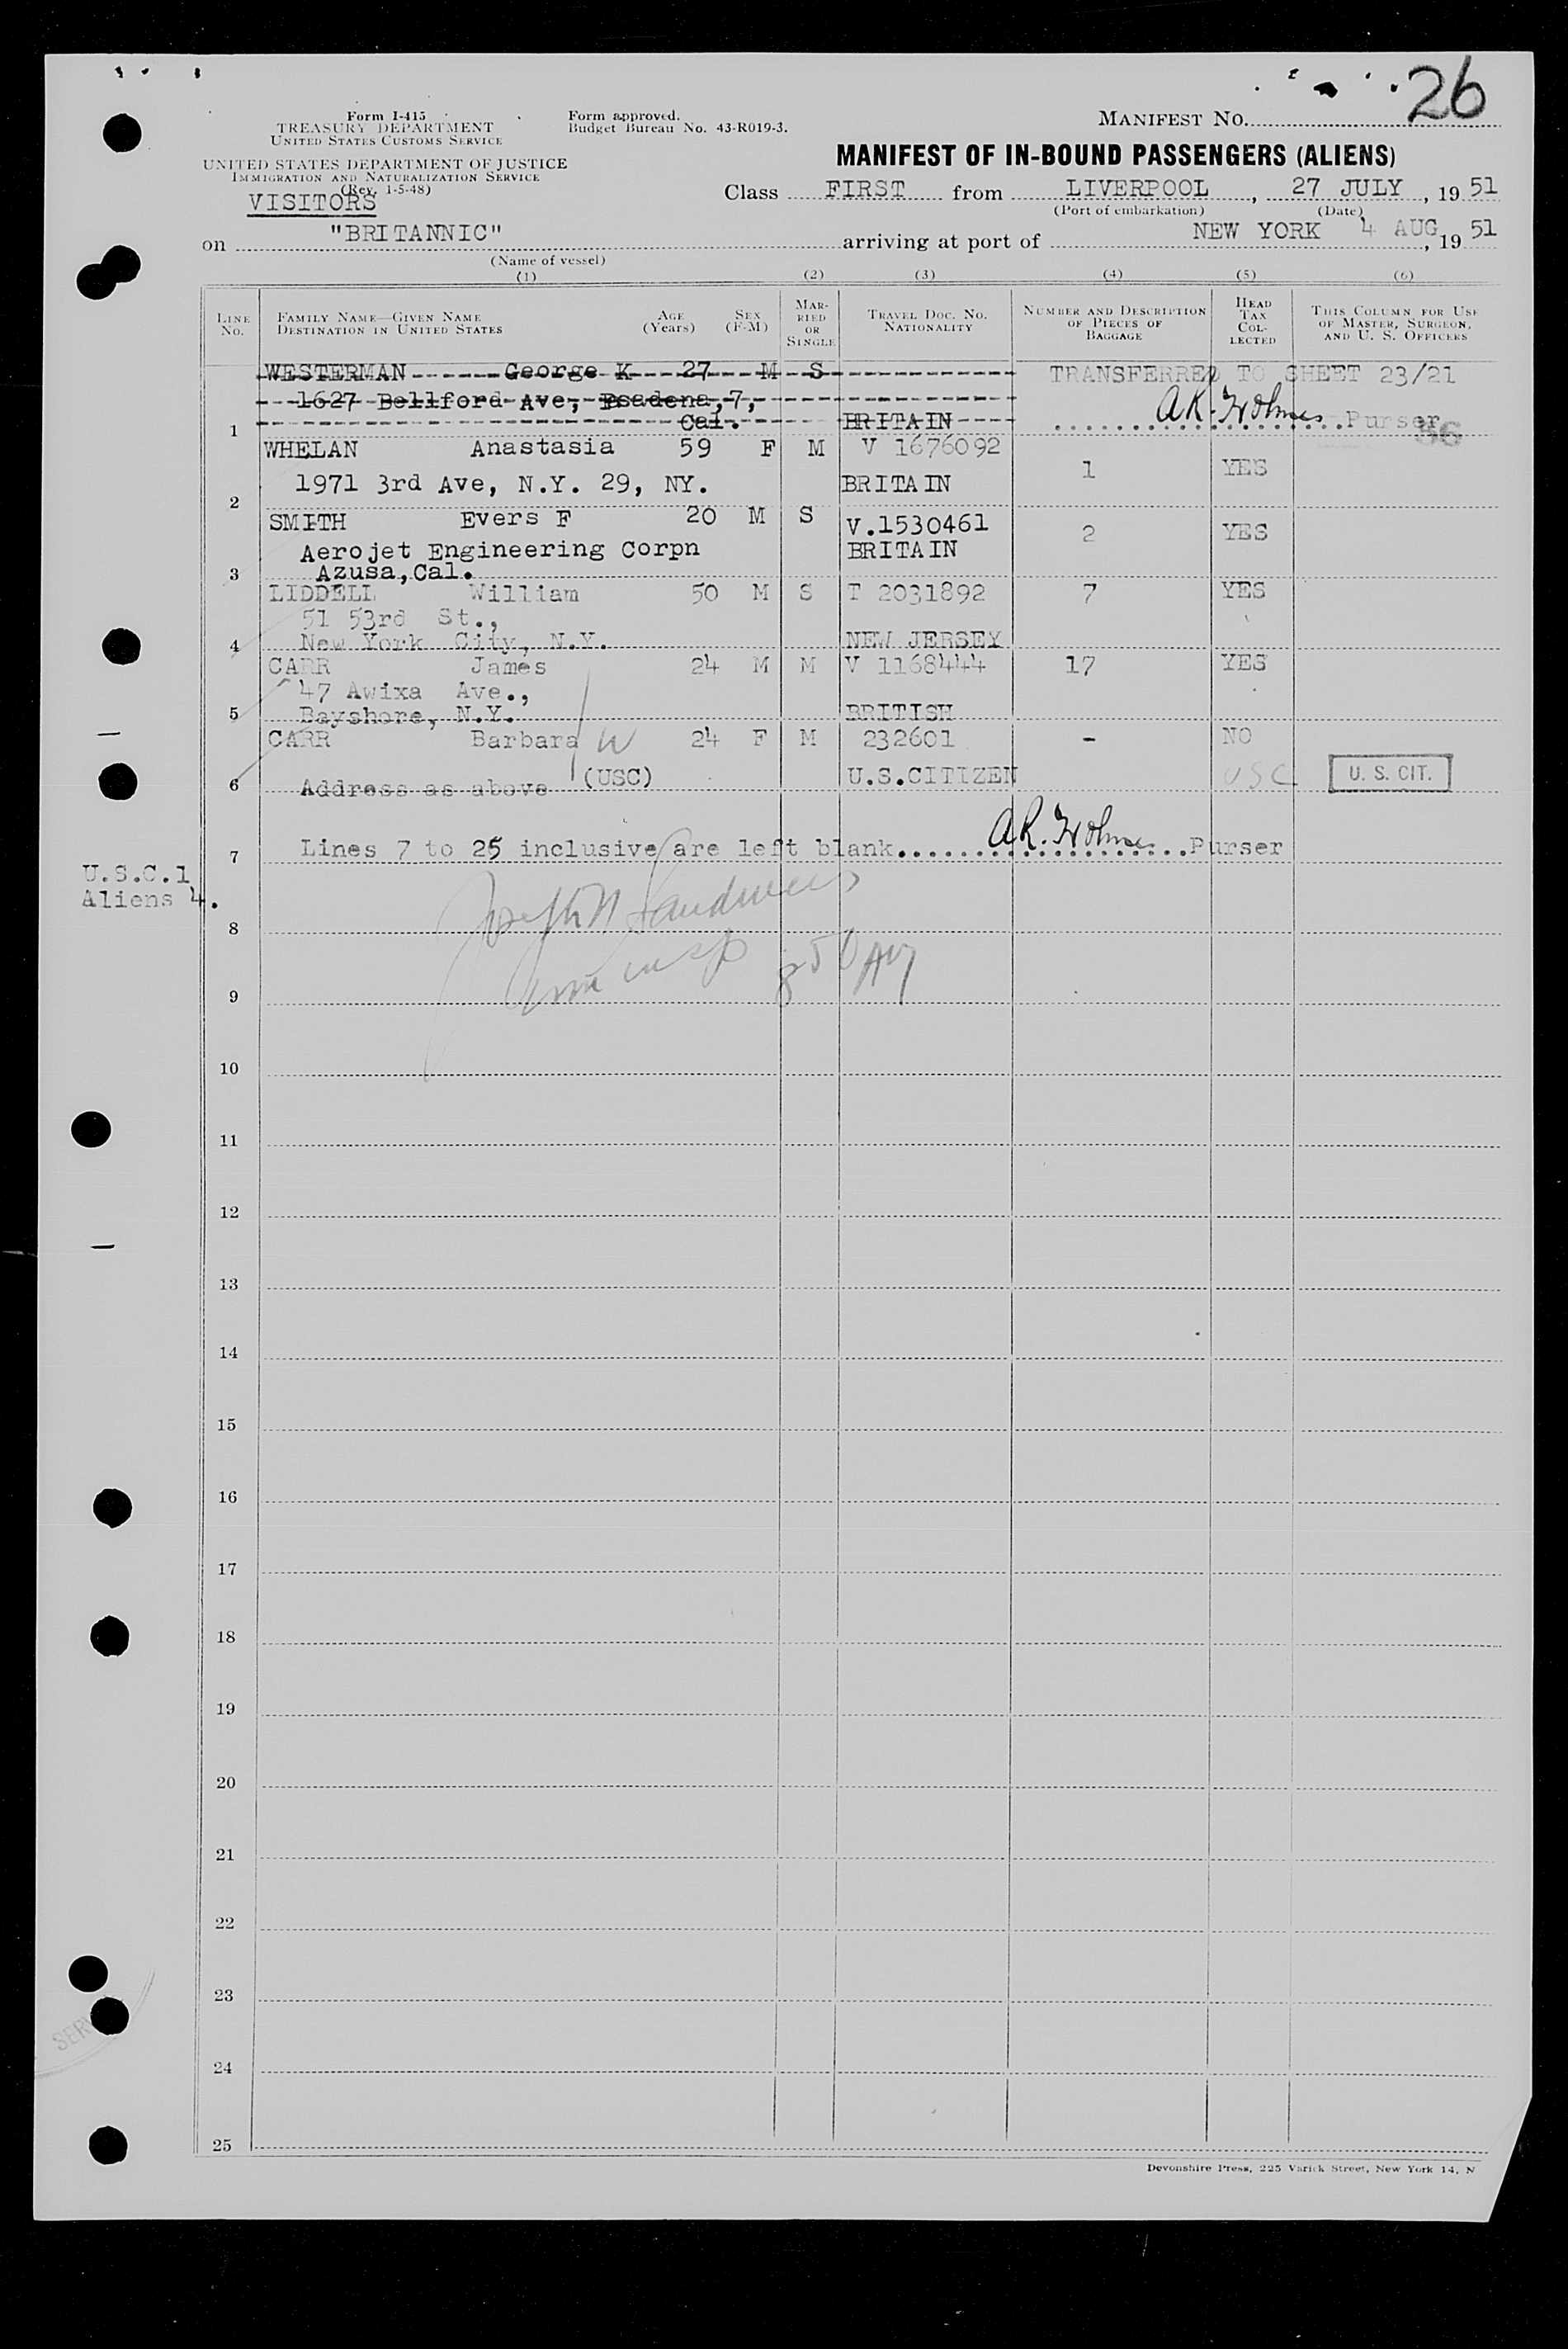 26
Form I-415
TREASURY DEPARTMENT
UNITED STATES CUSTOMS SERVICE
Form approved.
Budget Bureau No. 43-R019-3.
MANIFEST NO.
UNITED STATES DEPARTMENT OF JUSTICE
IMMIGRATION AND NATURALIZATION SERVICE
(Rev. 1-5-48)
VISITORS
MANIFEST OF IN-BOUND PASSENGERS (ALIENS)
Class FIRST from LIVERPOOL, 27 JULY, 1951
(Port of embarkation) (Date)
on "BRITANNIC" arriving at port of NEW YORK 4 AUG, 1951
(Name of vessel)
(1) (2) (3) (4) (5) (6)
LINE NO. FAMILY NAME—GIVEN NAME DESTINATION IN UNITED STATES AGE (Years) SEX (F-M) MARRIED OR SINGLE TRAVEL DOC. NO. NATIONALITY NUMBER AND DESCRIPTION OF PIECES OF BAGGAGE HEAD TAX COLLECTED THIS COLUMN FOR USE OF MASTER, SURGEON, AND U. S. OFFICERS
WESTERMAN George K 27 M S TRANSFERRED TO SHEET 23/21
1627 Bellford Ave, Psadena, 7,
1 Cal. BRITAIN A.R. Holmes Purser
WHELAN Anastasia 59 F M V 1676092
1 YES
2 1971 3rd Ave, N.Y. 29, NY. BRITAIN
SMITH Evers F 20 M S V.1530461 2 YES
Aerojet Engineering Corpn BRITAIN
3 Azusa, Cal.
LIDDELL William 50 M S T 2031892 7 YES
51 53rd St.,
4 New York City, N.Y. NEW JERSEY
CARR James 24 M M V 1168444 17 YES
47 Awixa Ave.,
5 Bayshore, N.Y. BRITISH
CARR Barbara W 24 F M 232601 - NO
6 Address as above (USC) U.S.CITIZEN USC U. S. CIT.
7 Lines 7 to 25 inclusive are left blank A.R. Holmes Purser
U.S.C.1
Aliens 4.
8
850 AM
9
10
11
12
13
14
15
16
17
18
19
20
21
22
23
SERV
24
25
Devonshire Press, 225 Varick Street, New York 14, N